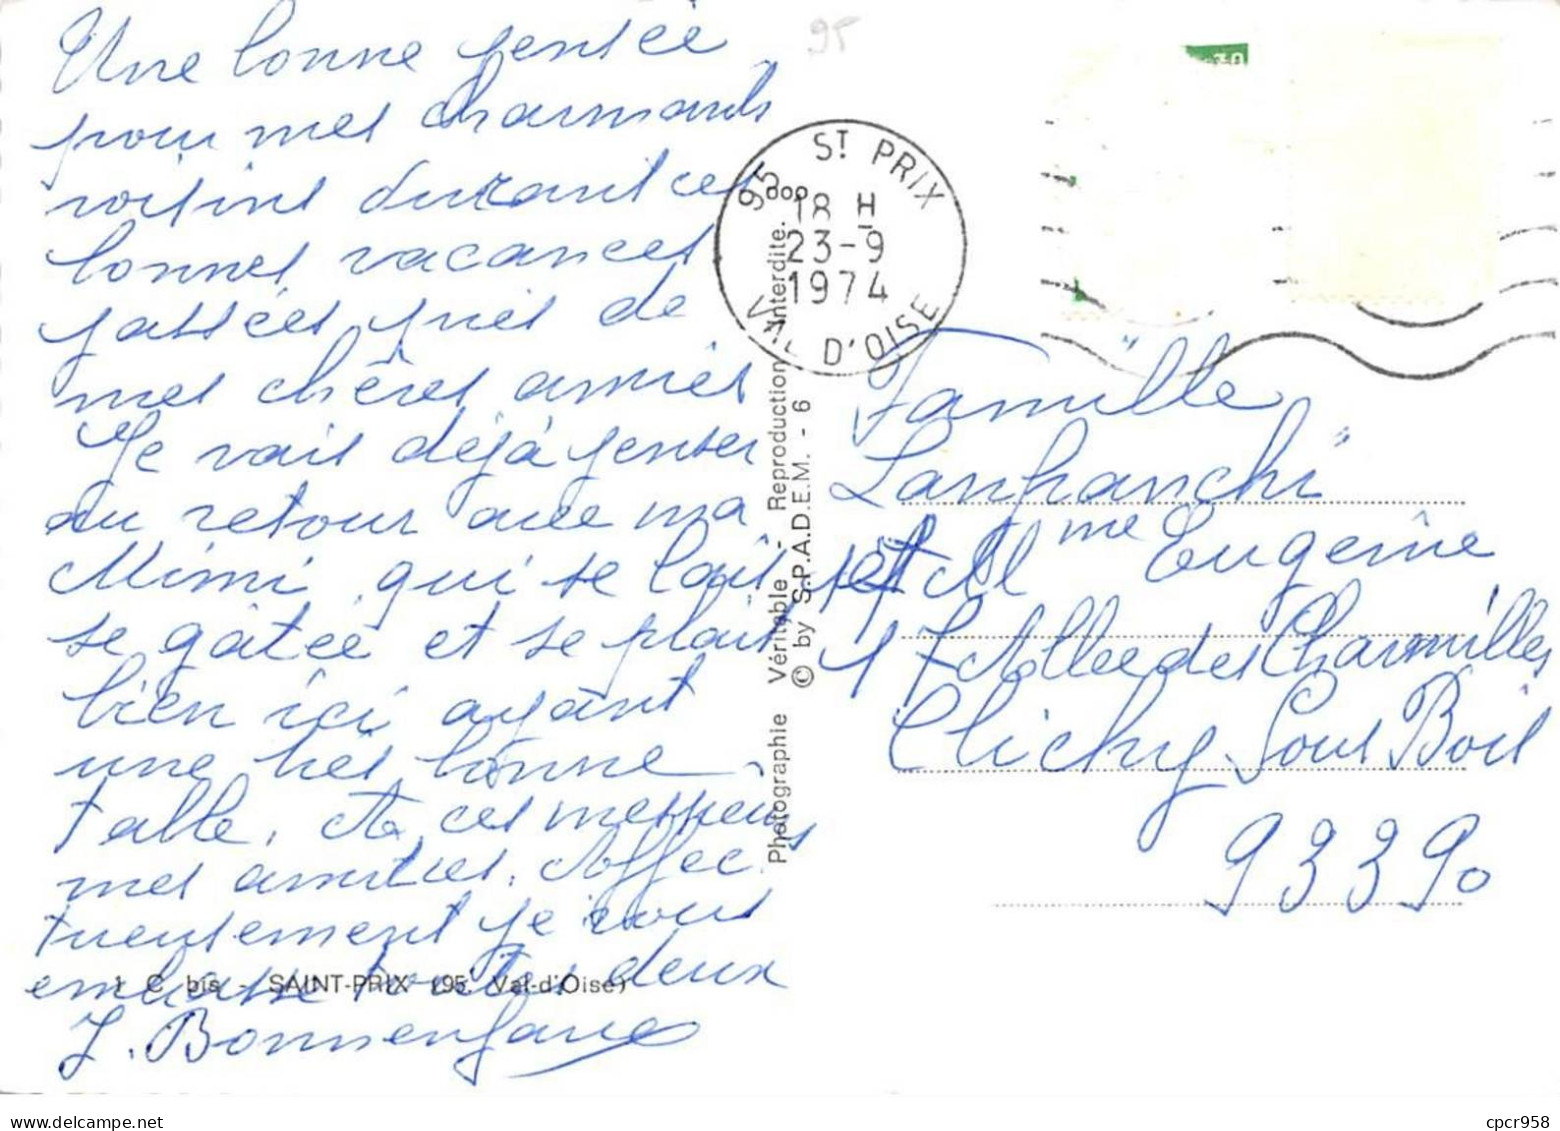 Une bonne pensée
pour mes charmants
voisins durant ces
bonnes vacances
passées près de
mes chères amies
Je vais déjà penser
au retour avec ma
Mimi, qui se
se gâtée et se plaît
bien ici ayant
une très bonne
table. A ces messieurs
mes amitiés. Affec
tueusement je vous
embrasse toutes deux
J. Bonnenfant
1 C bis - SAINT-PRIX (95. Val-d'Oise)
Photographie Véritable - Reproduction Interdite.
© by S.P.A.D.E.M. - 6
95
95 ST PRIX
18 H
23-9
1974
VAL D'OISE
Famille
Lanfranchi
et Mme Eugénie
17 Allée des Charmilles
Clichy Sous Bois
93390
cpcr958